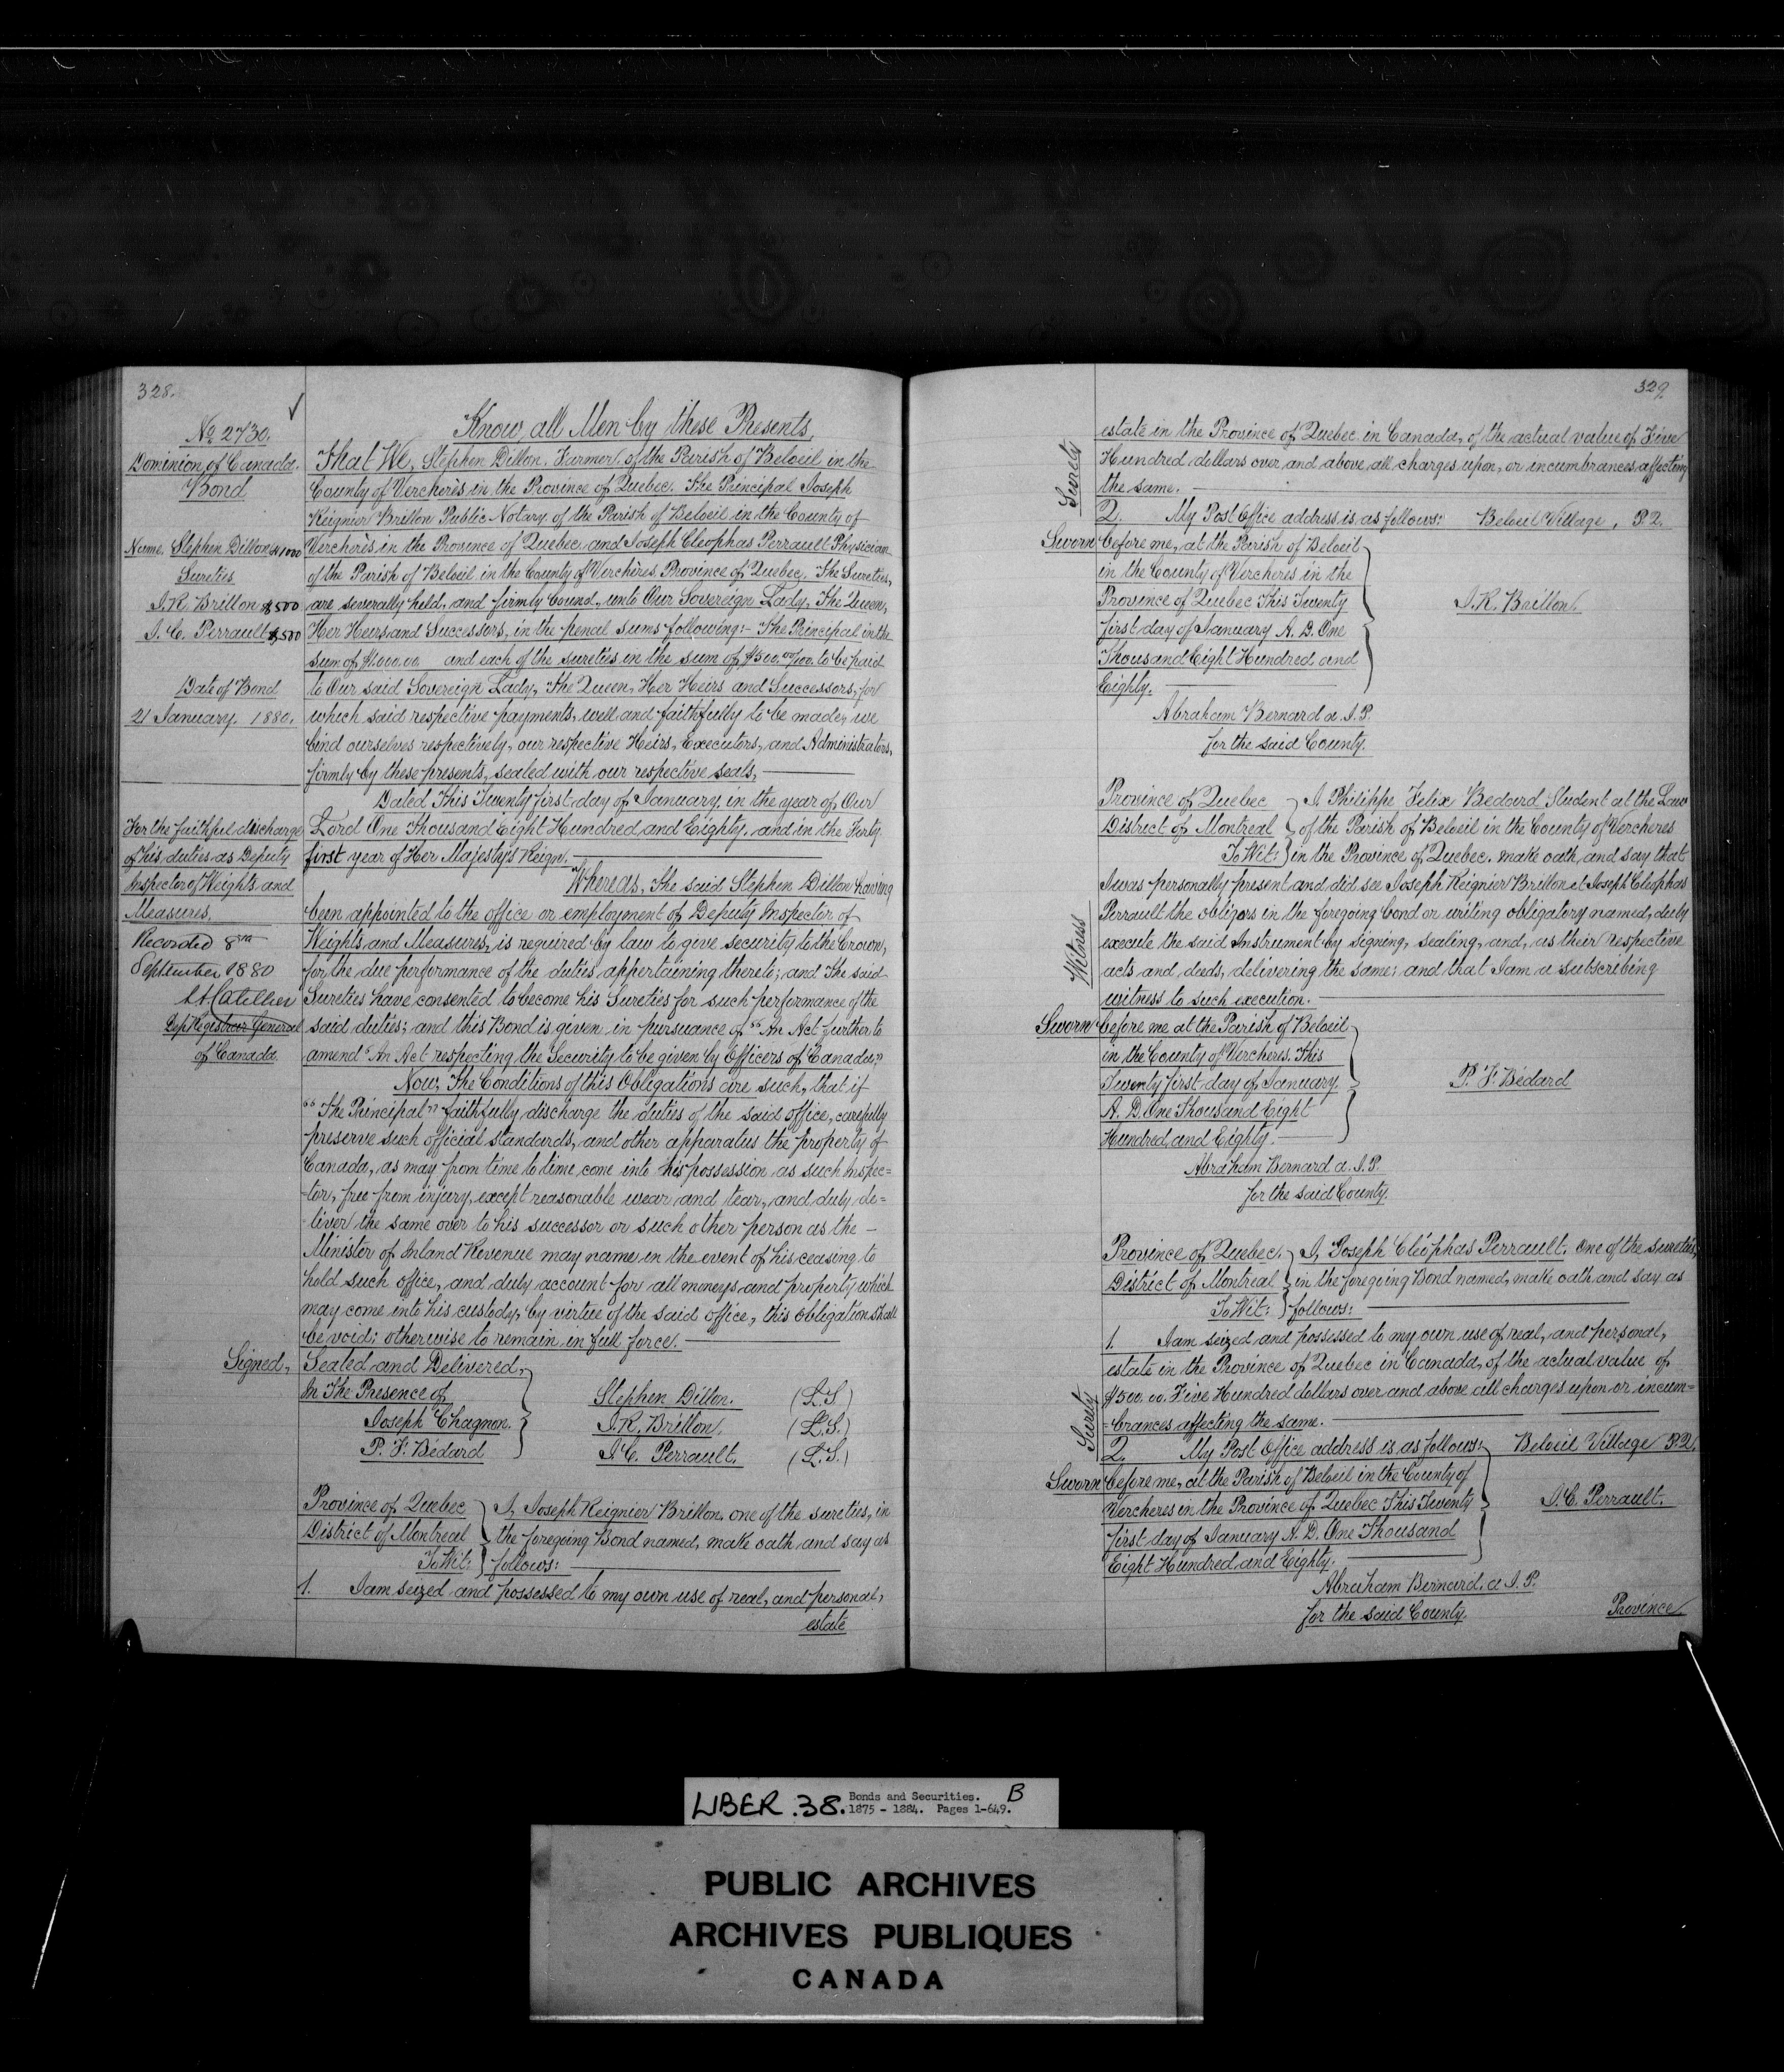 328.
No 2730.
Dominion of Canada.
Bond
Name. Stephen Dillon $1000
Sureties
J. R. Brillon $500
J. C. Perrault $500
Date of Bond
21 January. 1880.
For the faithful discharge
of his duties as Deputy
Inspector of Weights and
Measures.
Recorded 8th
September 1880
Dep Registrar General
of Canada.
Know all Men by these Presents,
That We, Stephen Dillon, Farmer, of the Parish of Belœil in the
County of Verchères in the Province of Quebec. The Principal Joseph
Reignier Brillon Public Notary of the Parish of Belœil in the County of
Verchères in the Province of Quebec, and Joseph Cleophas Perrault Physician
of the Parish of Belœil in the County of Verchères Province of Quebec. The Sureties,
are severally held, and firmly bound, unto Our Sovereign Lady, The Queen,
Her Heirs and Successors, in the penal sums following:- The Principal in the
sum of $1000.00 and each of the sureties in the sum of $500.00/100. to be paid
to Our said Sovereign Lady, The Queen, Her Heirs and Successors, for
which said respective payments, well and faithfully to be made, we
bind ourselves respectively, our respective Heirs, Executors, and Administrators,
firmly by these presents, sealed with our respective seals,
Dated This Twenty first day of January, in the year of Our
Lord One Thousand Eight Hundred and Eighty, and in the Forty
first year of Her Majesty's Reign.
Whereas, The said Stephen Dillon having
been appointed to the office or employment of Deputy Inspector of
Weights and Measures, is required by law to give security to the Crown,
for the due performance of the duties appertaining thereto; and The said
Sureties have consented to become his Sureties for such performance of the
said duties; and this Bond is given in pursuance of "An Act further to
amend 'An Act respecting the Security to be given by Officers of Canada,"
Now, The Conditions of this Obligations are such, that if
"The Principal" faithfully discharge the duties of the said office, carefully
preserve such official standards, and other apparatus the property of
Canada, as may from time to time come into his possession as such Inspec=
=tor, free from injury, except reasonable wear and tear, and duly de=
liver the same over to his successor or such other person as the -
Minister of Inland Revenue may name in the event of his ceasing to
hold such office, and duly account for all moneys and property which
may come into his custody, by virtue of the said office, this obligation shall
be void; otherwise to remain in full force.
Signed, Sealed and Delivered,
In The Presence of
Joseph Chagnon.
P. F. Bédard
Stephen Dillon. (L.S.)
J. R. Brillon. (L.S.)
J. C. Perrault. (L.S.)
Province of Quebec
District of Montreal
To Wit:
I, Joseph Reignier Brillon, one of the sureties, in
the foregoing Bond named, make oath and say as
follows:
1. I am seized and possessed to my own use of real, and personal,
estate
329.
Surety
estate in the Province of Quebec in Canada, of the actual value of Five
Hundred dollars over and above all charges upon, or incumbrances affecting
the same.
2. My Post Office address is as follows: Belœil Village, P.Q.
Sworn before me, at the Parish of Belœil
in the County of Vercheres in the
Province of Quebec This Twenty
first day of January A. D. One
Thousand Eight Hundred and
Eighty.
J. R. Brillon.
Abraham Bernard a. J. P.
for the said County.
Witness
Province of Quebec
District of Montreal
To Wit:
I, Philippe Felix Bedard Student at the Law
of the Parish of Belœil in the County of Vercheres
in the Province of Quebec. make oath and say that
I was personally present and did see Joseph Reignier Brillon et Joseph Cleophas
Perrault the obligors in the foregoing bond or writing obligatory named, duly
execute the said Instrument by signing, sealing, and, as their respective
acts and deeds, delivering the same; and that I am a subscribing
witness to such execution.
Sworn before me at the Parish of Belœil
in the County of Vercheres. This
Twenty first day of January.
A. D. One Thousand Eight
Hundred and Eighty.
P. F. Bédard
Abraham Bernard a. J. P.
for the said County.
Surety
Province of Quebec.
District of Montreal
To Wit:
I, Joseph Cléophas Perrault. One of the sureties,
in the foregoing Bond named, make oath and say as
follows:
1. I am seized and possessed to my own use of real, and personal,
estate in the Province of Quebec in Canada, of the actual value of
$500.00. Five Hundred dollars over and above all charges upon or incum=
=brances affecting the same.
2. My Post Office address is as follows: Belœil Village P.Q.
Sworn before me, at the Parish of Belœil in the County of
Vercheres in the Province of Quebec This Twenty
first day of January A. D. One Thousand
Eight Hundred and Eighty.
J. C. Perrault.
Abraham Bernard. a J. P.
for the said County.
Province
LIBER. 38. Bonds and Securities. B
1875 - 1884. Pages 1-649.
PUBLIC ARCHIVES
ARCHIVES PUBLIQUES
CANADA